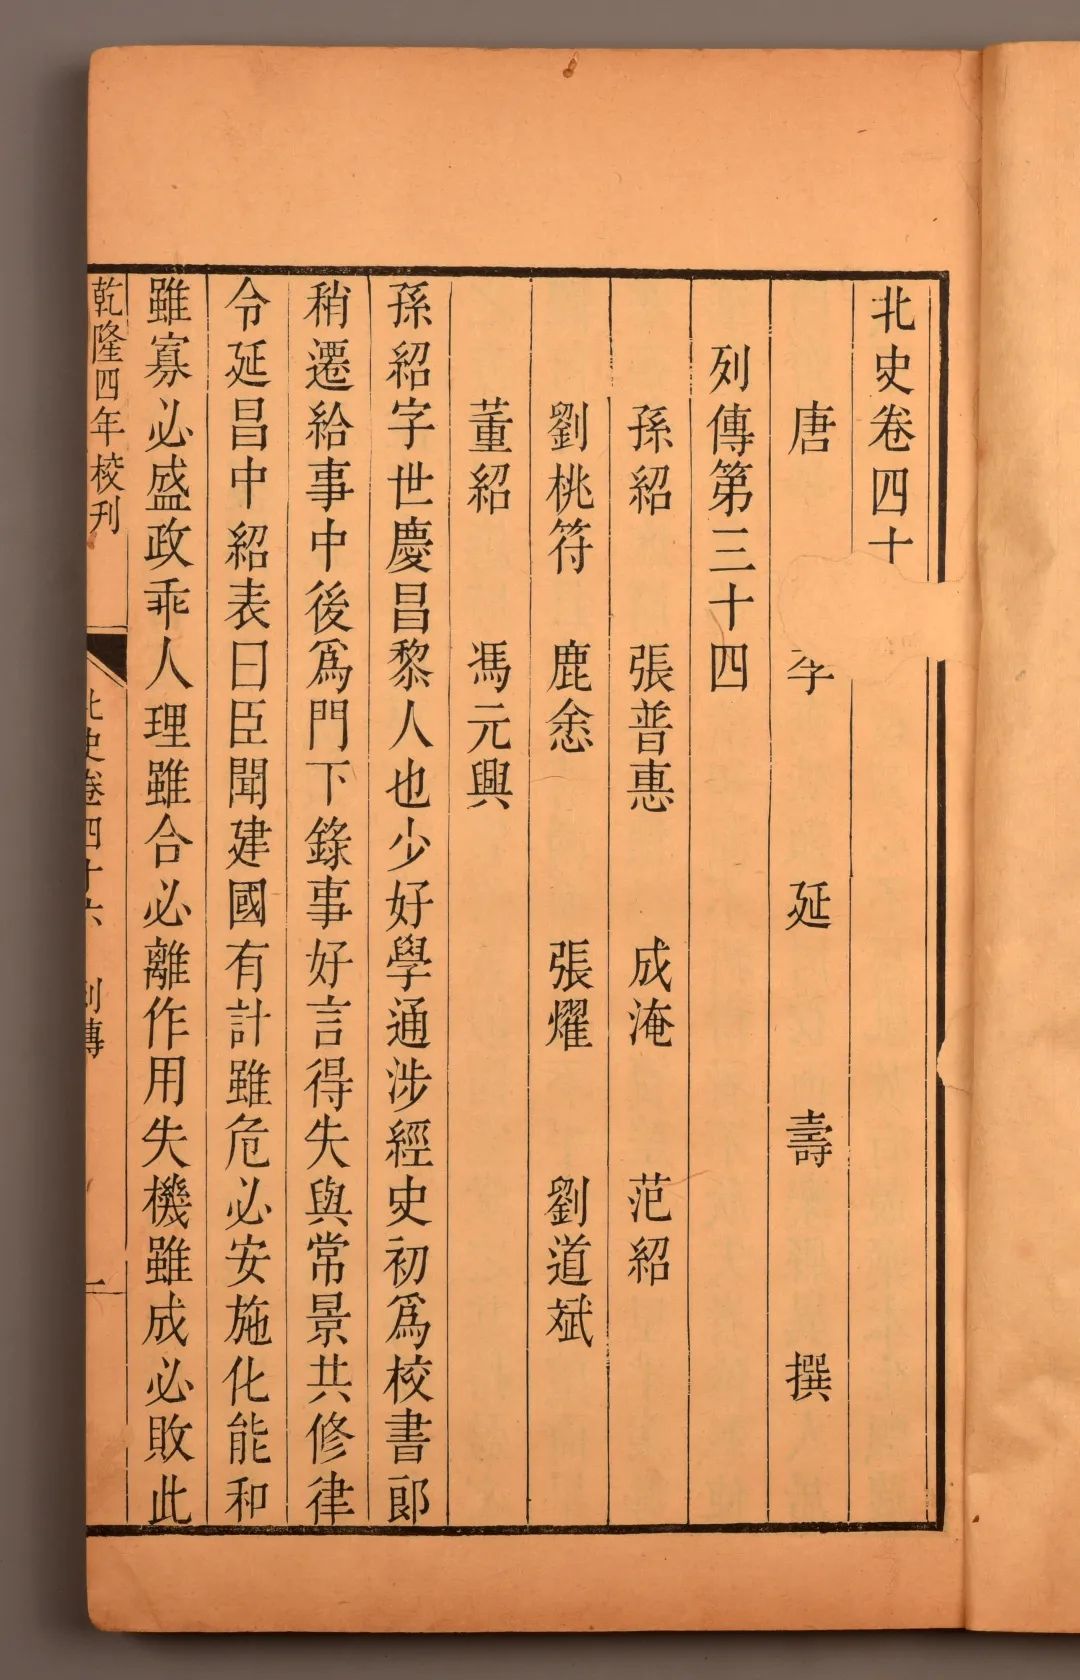 北史卷四十
唐 李 延 壽 撰
列傳第三十四
孫紹 張普惠 成淹 范紹
劉桃符 鹿悆 張燿 劉道斌
董紹 馮元興
孫紹字世慶昌黎人也少好學通涉經史初爲校書郎
稍遷給事中後爲門下錄事好言得失與常景共修律
令延昌中紹表曰臣聞建國有計雖危必安施化能和
雖寡必盛政乖人理雖合必離作用失機雖成必敗此
乾隆四年校刊 北史卷四十六 列傳 一